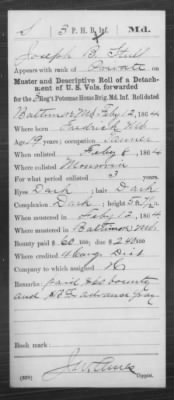 S 3 P. H. B. Inf. Md.
Joseph B. Stull
Appears with rank of Private on
Muster and Descriptive Roll of a Detach-
ment of U. S. Vols. forwarded
for the 3 Reg't Potomac Home Brig. Md. Inf. Roll dated
Baltimore Md. Feby 12, 1864
Where born Fredrick Md
Age 19 years; occupation
When enlisted Feby 8, 1864
Where enlisted Monrovia
For what period enlisted 3 years.
Eyes Dark; hair Dark
Complexion Dark; height 5 ft. in.
When mustered in Feby 12, 1864
Where mustered in Baltimore Md
Bounty paid $ 60 100; due $ 240 100
Where credited 4 Cong. Dist
Company to which assigned
Remarks: paid bounty
and advance pay
Book mark:
Copyist.